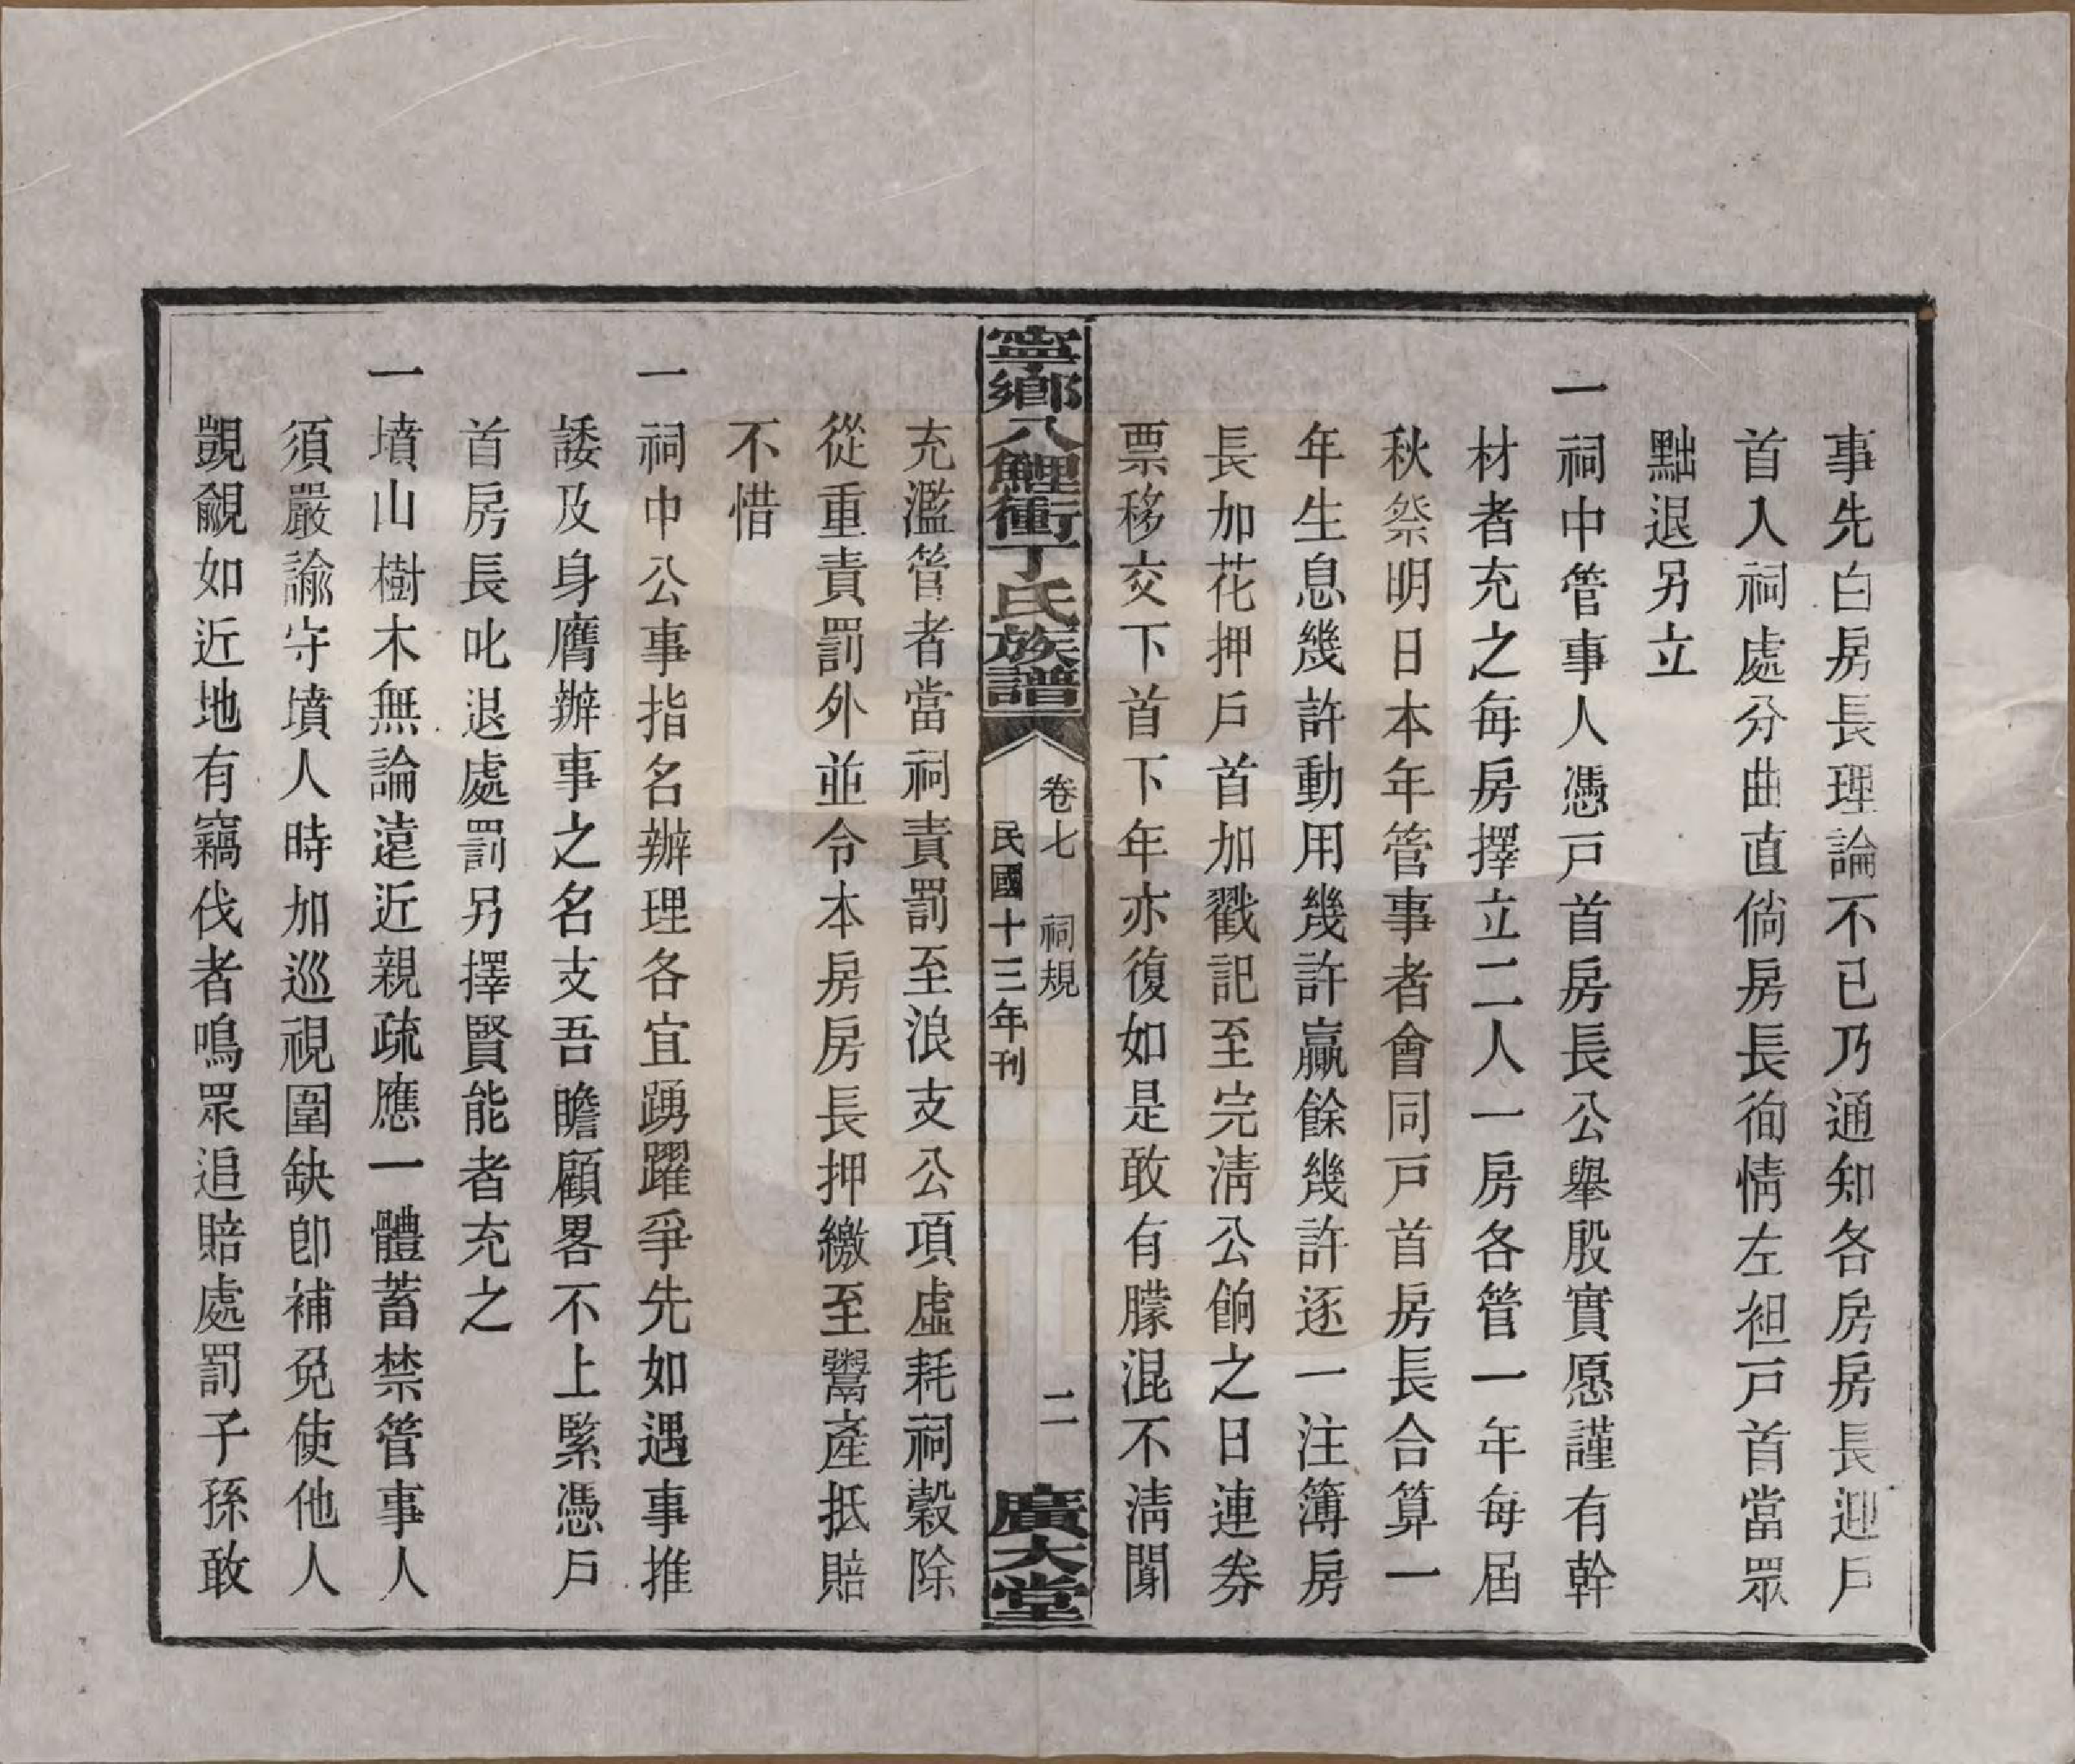 事先白房長理論不已乃通知各房房長迎戶
首入祠處分曲直倘房長徇情左袒戶首當眾
黜退另立
一祠中管事人憑戶首房長公舉殷實愿謹有幹
材者充之每房擇立二人一房各管一年每屆
秋祭明日本年管事者會同戶首房長合算一
年生息幾許動用幾許贏餘幾許逐一注簿房
長加花押戶首加戳記至完淸公餉之日連券
票移交下首下年亦復如是敢有朦混不淸闌
寧鄉八鯉衝丁氏族譜
卷七 祠規 二
民國十三年刊
廣大堂
充濫管者當祠責罰至浪支公項虛耗祠穀除
從重責罰外並令本房房長押繳至鬻產抵賠
不惜
一祠中公事指名辦理各宜踴躍爭先如遇事推
諉及身膺辦事之名支吾瞻顧畧不上緊憑戶
首房長叱退處罰另擇賢能者充之
一墳山樹木無論遠近親疏應一體蓄禁管事人
須嚴諭守墳人時加巡視圍缺卽補免使他人
覬覦如近地有竊伐者鳴眾追賠處罰子孫敢